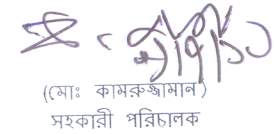 (মোঃ কামরুজ্জামান)
সহকারী পরিচালক